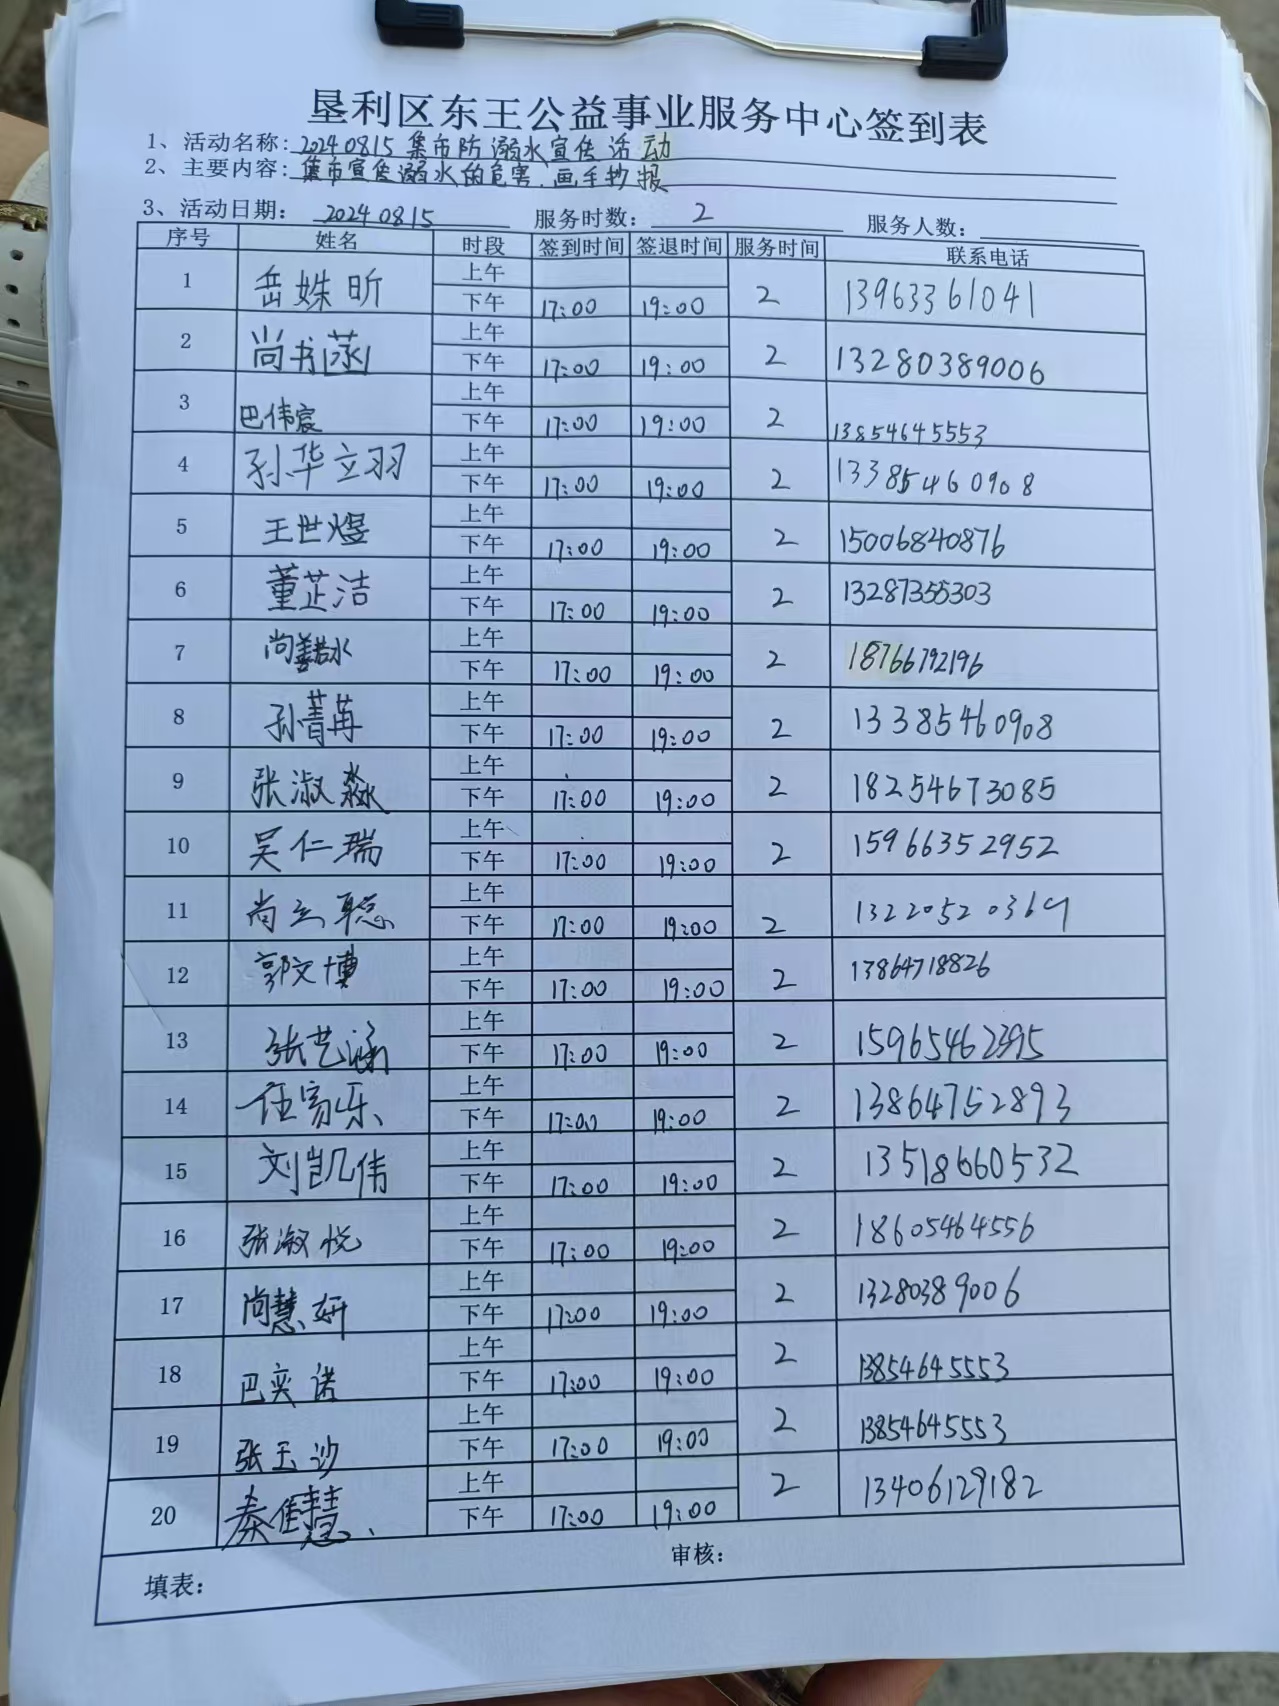 垦利区东王公益事业服务中心签到表
1、活动名称：20240815 集市防溺水宣传活动
2、主要内容：集市宣传溺水的危害、画手抄报
3、活动日期：20240815 服务时数：2 服务人数：
序号 姓名 时段 签到时间 签退时间 服务时间 联系电话
1 岳姝昕 上午 2 13963361041
下午 17:00 19:00
2 尚书菡 上午 2 13280389006
下午 17:00 19:00
3 巴伟宸 上午 2 13854645553
下午 17:00 19:00
4 孙华立羽 上午 2 13385460908
下午 17:00 19:00
5 王世煜 上午 2 15006840876
下午 17:00 19:00
6 董芷洁 上午 2 13287355303
下午 17:00 19:00
7 尚 上午 2 18766792196
下午 17:00 19:00
8 孙菁苒 上午 2 13385460908
下午 17:00 19:00
9 张淑淼 上午 2 18254673085
下午 17:00 19:00
10 吴仁瑞 上午 2 15966352952
下午 17:00 19:00
11 尚玄聪 上午 2 13220520369
下午 17:00 19:00
12 郭文博 上午 2 13864718826
下午 17:00 19:00
13 张艺涵 上午 2 15965462395
下午 17:00 19:00
14 伍家乐 上午 2 13864752893
下午 17:00 19:00
15 刘凯伟 上午 2 13518660532
下午 17:00 19:00
16 张淑悦 上午 2 18605464556
下午 17:00 19:00
17 尚慧妍 上午 2 13280389006
下午 17:00 19:00
18 巴奕诺 上午 2 13854645553
下午 17:00 19:00
19 张玉沙 上午 2 13854645553
下午 17:00 19:00
20 秦佳慧 上午 2 13406129182
下午 17:00 19:00
填表： 审核：